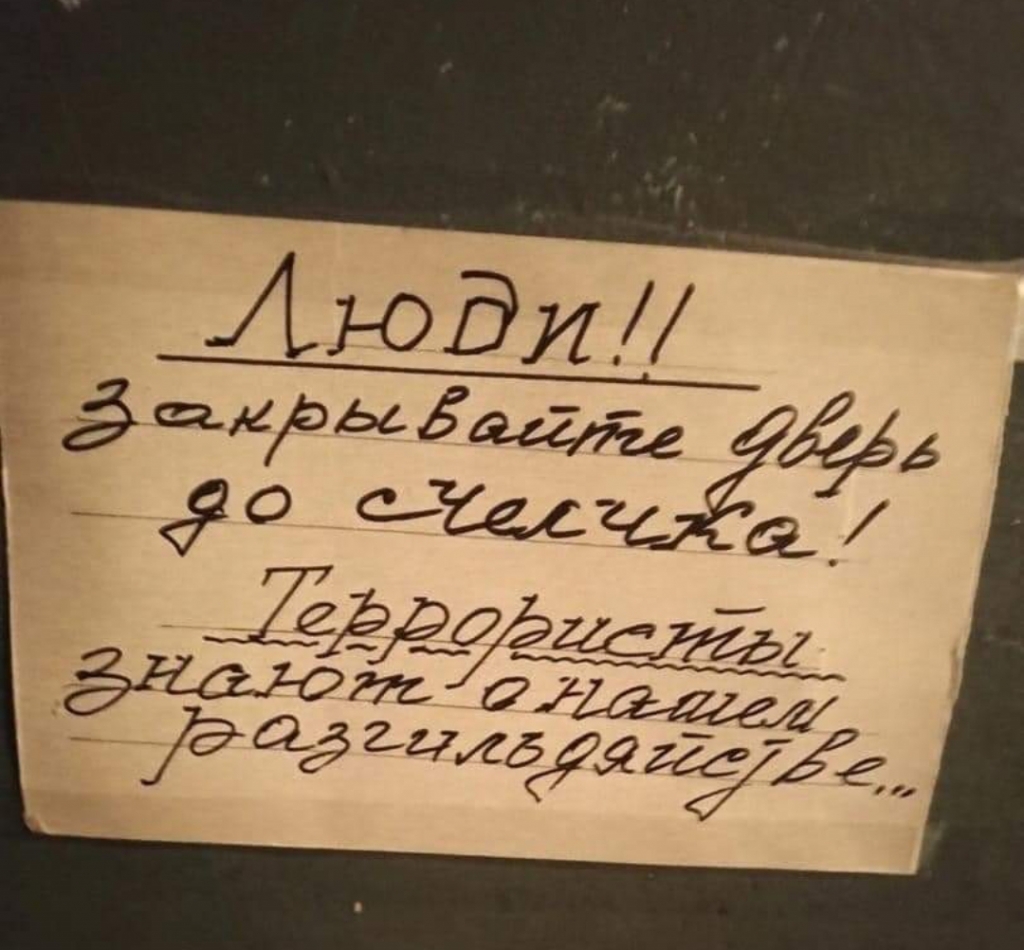 Люди!!
закрывайте дверь
до счелчка!
Террористы
знают о нашем
разгильдяйстве...